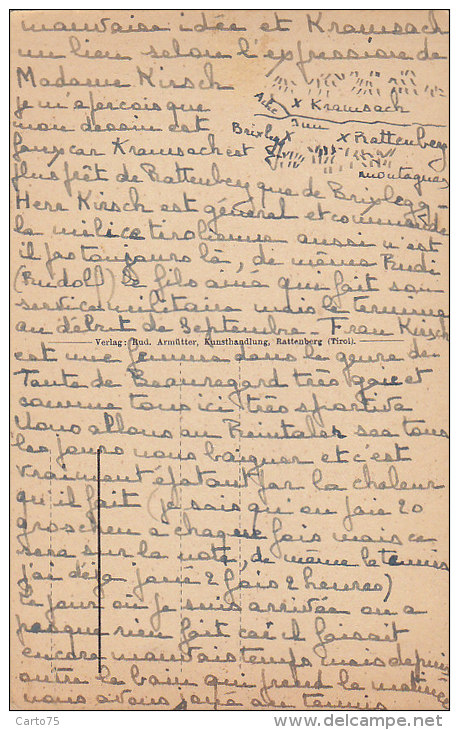 mauvaise idée et Kramsach
un lieu selon l'expression de
Madame Kirsch
je m'aperçois que
mon dessin est
faux car Kramsach est
plus près de Rattenberg que de Brixlegg
Ache
x Kramsach
Inn
Brixlegg x
x Rattenberg
montagnes
Herr Kirsch est général et commande
la milice tirolienne aussi n'est
il pas toujours là, de même Rudi
(Rudolf) le fils ainé qui fait son
service militaire mais le termine
au début de Septembre - Frau Kirsch
Verlag: Rud. Armütter, Kunsthandlung, Rattenberg (Tirol).
est une femme dans le genre de
Tante de Beauregard très gaie et
comme tous ici très sportive
Nous allons au Reintaler see tous
les jours nous baigner et c'est
vraiment épatant par la chaleur
qu'il fait je sais qu'on paie 20
groschen a chaque fois mais ce
sera sur la note, de même le tennis
j'ai déjà joué 2 fois 2 heures)
Le jour où je suis arrivée on a
presque rien fait car il faisait
encore mauvais temps mais depuis
outre le bain qui prend la matinée
nous avons joué au tennis
Carto75